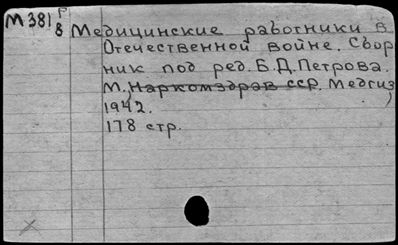 М381 Р/8 Медицинские работники в
Отечественной войне. Сбор
ник под ред. Б.Д.Петрова.
М., Наркомздрав сср. Медгиз,
1942.
178 стр.